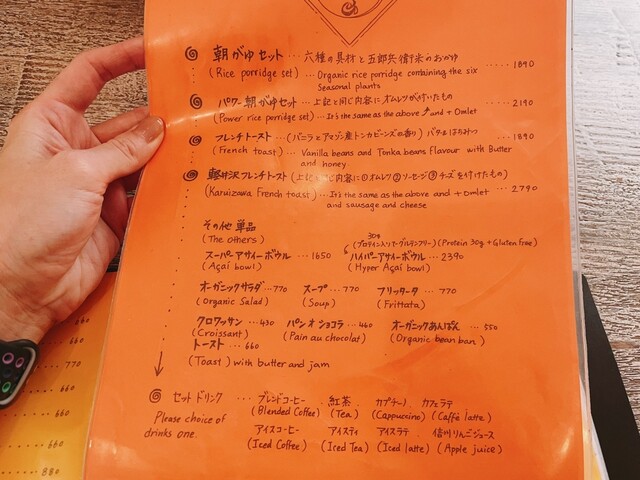 朝がゆセット … 六種の具材と五郎兵衛米のおかゆ
(Rice porridge set) … Organic rice porridge combining the six ..... 1890
Seasonal plants
パワー朝がゆセット … 上記と同じ内容にオムレツが付いたもの
(Power rice porridge set) … It's the same as the above and + Omlet ..... 2190
フレンチトースト … (バニラとアマゾン産トンカビーンズの香り) バターとはちみつ
(French toast) … Vanilla beans and Tonka beans flavour with Butter ..... 1890
and honey
軽井沢フレンチトースト (上記と同じ内容に①オムレツ②ソーセージ③チーズを付けたもの)
(Karuizawa French toast) … It's the same as the above and + Omlet ... 2790
and sausage and cheese
その他 単品
(The others)
30g
(プロテイン入り・グルテンフリー) (Protein 30g + Gluten free)
スーパーアサイーボウル … 1650 ハイパーアサイーボウル … 2390
(Açaí bowl) (Hyper Açaí bowl)
オーガニックサラダ … 770 スープ … 770 フリッタータ … 770
(Organic Salad) (Soup) (Frittata)
クロワッサン … 430 パン オ ショコラ … 460 オーガニックあんぱん … 550
(Croissant) (Pain au chocolat) (Organic bean ban)
トースト … 660
(Toast) with butter and jam
セットドリンク … ブレンドコーヒー 、紅茶 、カプチーノ、カフェラテ
Please choice of (Blended Coffee) (Tea) (Cappuccino) (Caffè latte)
drinks one. アイスコーヒー 、アイスティ アイスラテ 、信州りんごジュース
(Iced Coffee) (Iced Tea) (Iced latte) (Apple juice)
660
770
660
660
660
880